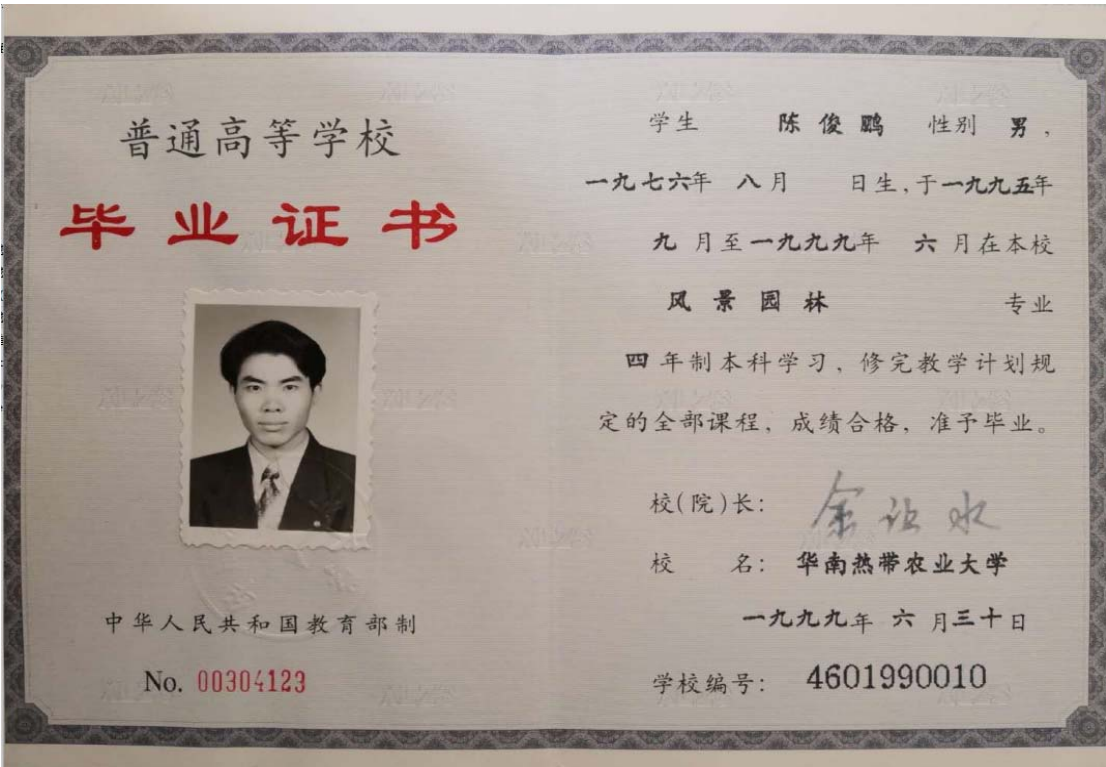 普通高等学校
毕业证书
中华人民共和国教育部制
No. 00304123
学生 陈俊鹏 性别 男，
一九七六年 八月 日生，于一九九五年
九月至一九九九年 六月在本校
风景园林 专业
四年制本科学习，修完教学计划规
定的全部课程，成绩合格，准予毕业。
校(院)长：余让水
校 名：华南热带农业大学
一九九九年 六月三十日
学校编号：4601990010